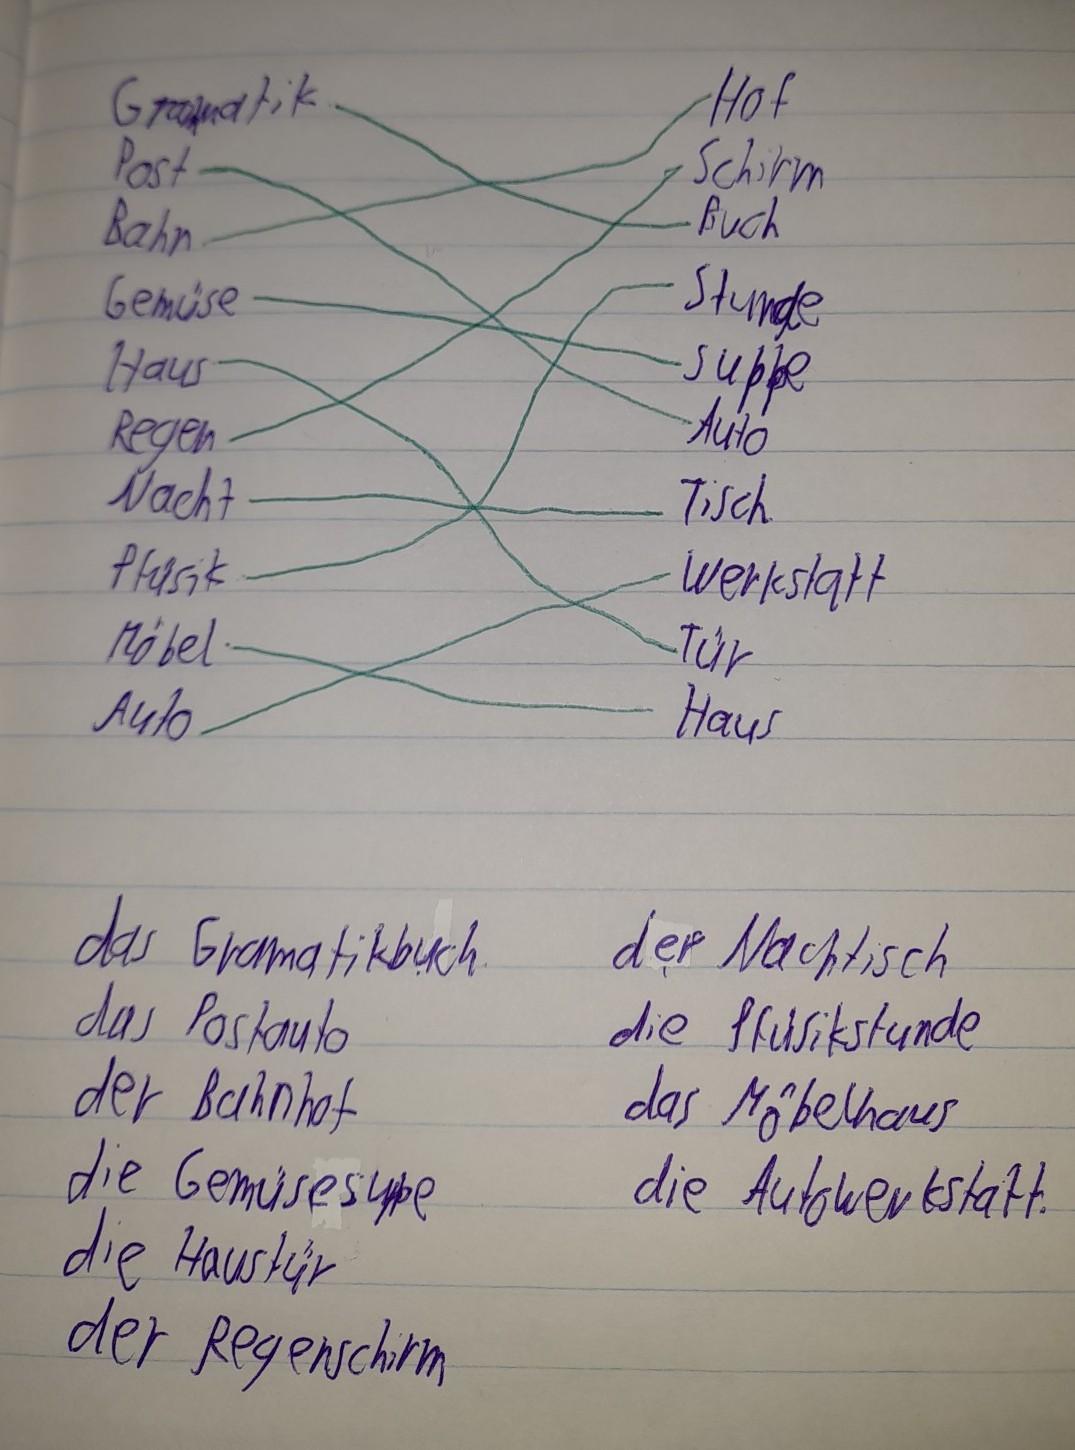 Gramatik Hof
Post Schirm
Bahn Buch
Gemüse Stunde
Haus Suppe
Regen Auto
Nacht Tisch
Pfüsik Werkstatt
Möbel Tür
Auto Haus
das Gramatikbuch der Nachtisch
das Postauto die Pfüsikstunde
der Bahnhof das Möbelhaus
die Gemüsesuppe die Autowerkstatt.
die Haustür
der Regenschirm